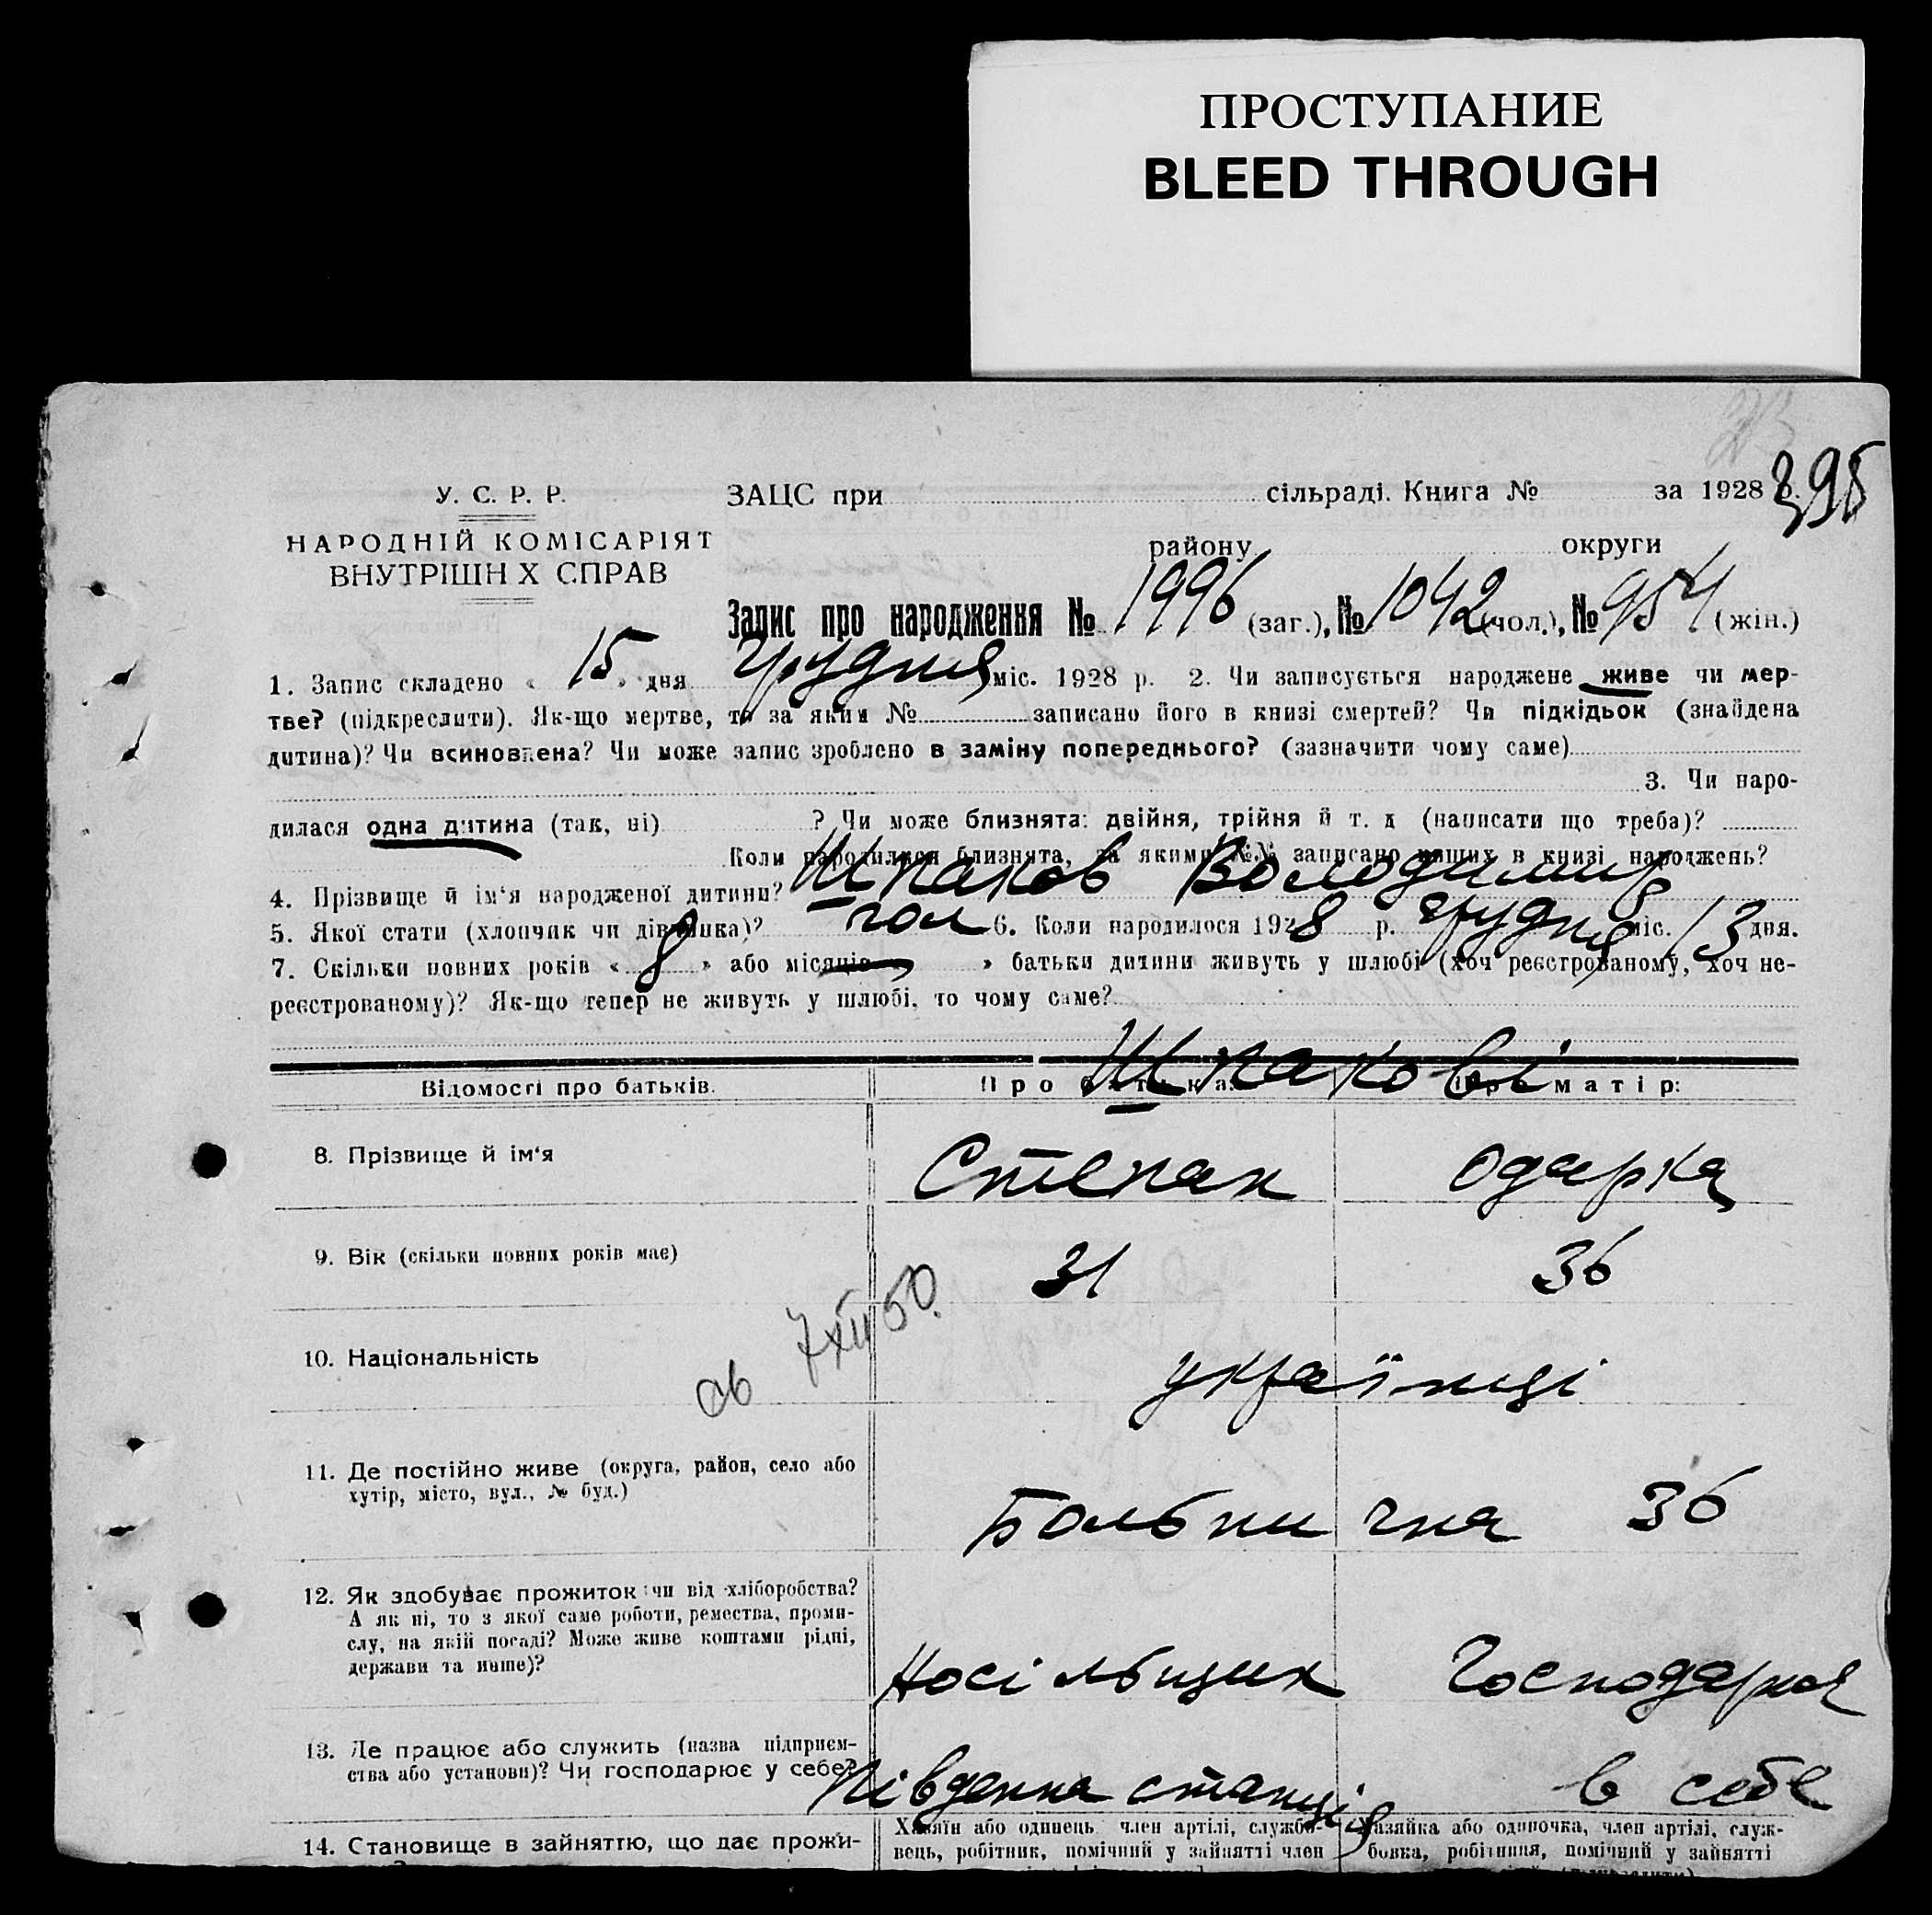 ПРОСТУПАНИЕ
BLEED THROUGH
395
У. С. Р. Р.
НАРОДНІЙ КОМІСАРІЯТ
ВНУТРІШН Х СПРАВ
ЗАЦС при сільраді. Книга № за 1928 р.
району округи
Запис про народження № 1996 (заг.), № 1042 (чол.), № 954 (жін.)
1. Запис складено « 15 » дня грудня міс. 1928 р. 2. Чи записується народжене живе чи мер-
тве? (підкреслити). Як-що мертве, то за яким № записано його в книзі смертей? Чи підкідьок (знайдена
дитина)? Чи всиновлена? Чи може запис зроблено в заміну попереднього? (зазначити чому саме)
3. Чи наро-
дилася одна дитина (так, ні) ? Чи може близнята: двійня, трійня й т. д (написати що треба)?
Коли народилися близнята, за якими №№ записано инших в книзі народжень?
4. Прізвище й ім‘я народженої дитини? Шпаков Володимир
5. Якої стати (хлопчик чи дівчинка)? чол 6. Коли народилося 1928 р. грудня міс. 13 дня.
7. Скільки повних років « 8 » або місяців » батьки дитини живуть у шлюбі (хоч реєстрованому, хоч не-
реєстрованому)? Як-що тепер не живуть у шлюбі, то чому саме?
Шпакові
Відомості про батьків. Про батька: Про матір:
8. Прізвище й ім‘я Степан Одарка
9. Вік (скільки повних років має) 31 36
7 XII 50.
10. Національність українці
11. Де постійно живе (округа, район, село або
хутір, місто, вул., № буд.) Больнична 36
12. Як здобуває прожиток: чи від хліборобства?
А як ні, то з якої саме роботи, ремества, проми-
слу, на якій посаді? Може живе коштами рідні,
держави та инше)? Носільщик Господарка
13. Де працює або служить (назва підприєм-
ства або установи)? Чи господарює у себе? Південна станція в себе
14. Становище в зайняттю, що дає прожи-
Хазяїн або одинець член артілі, службо-
вець, робітник, помічний у зайнятті член
Хазяйка або одиночка, член артілі, служ-
бовка, робітниця, помічний у зайнятті